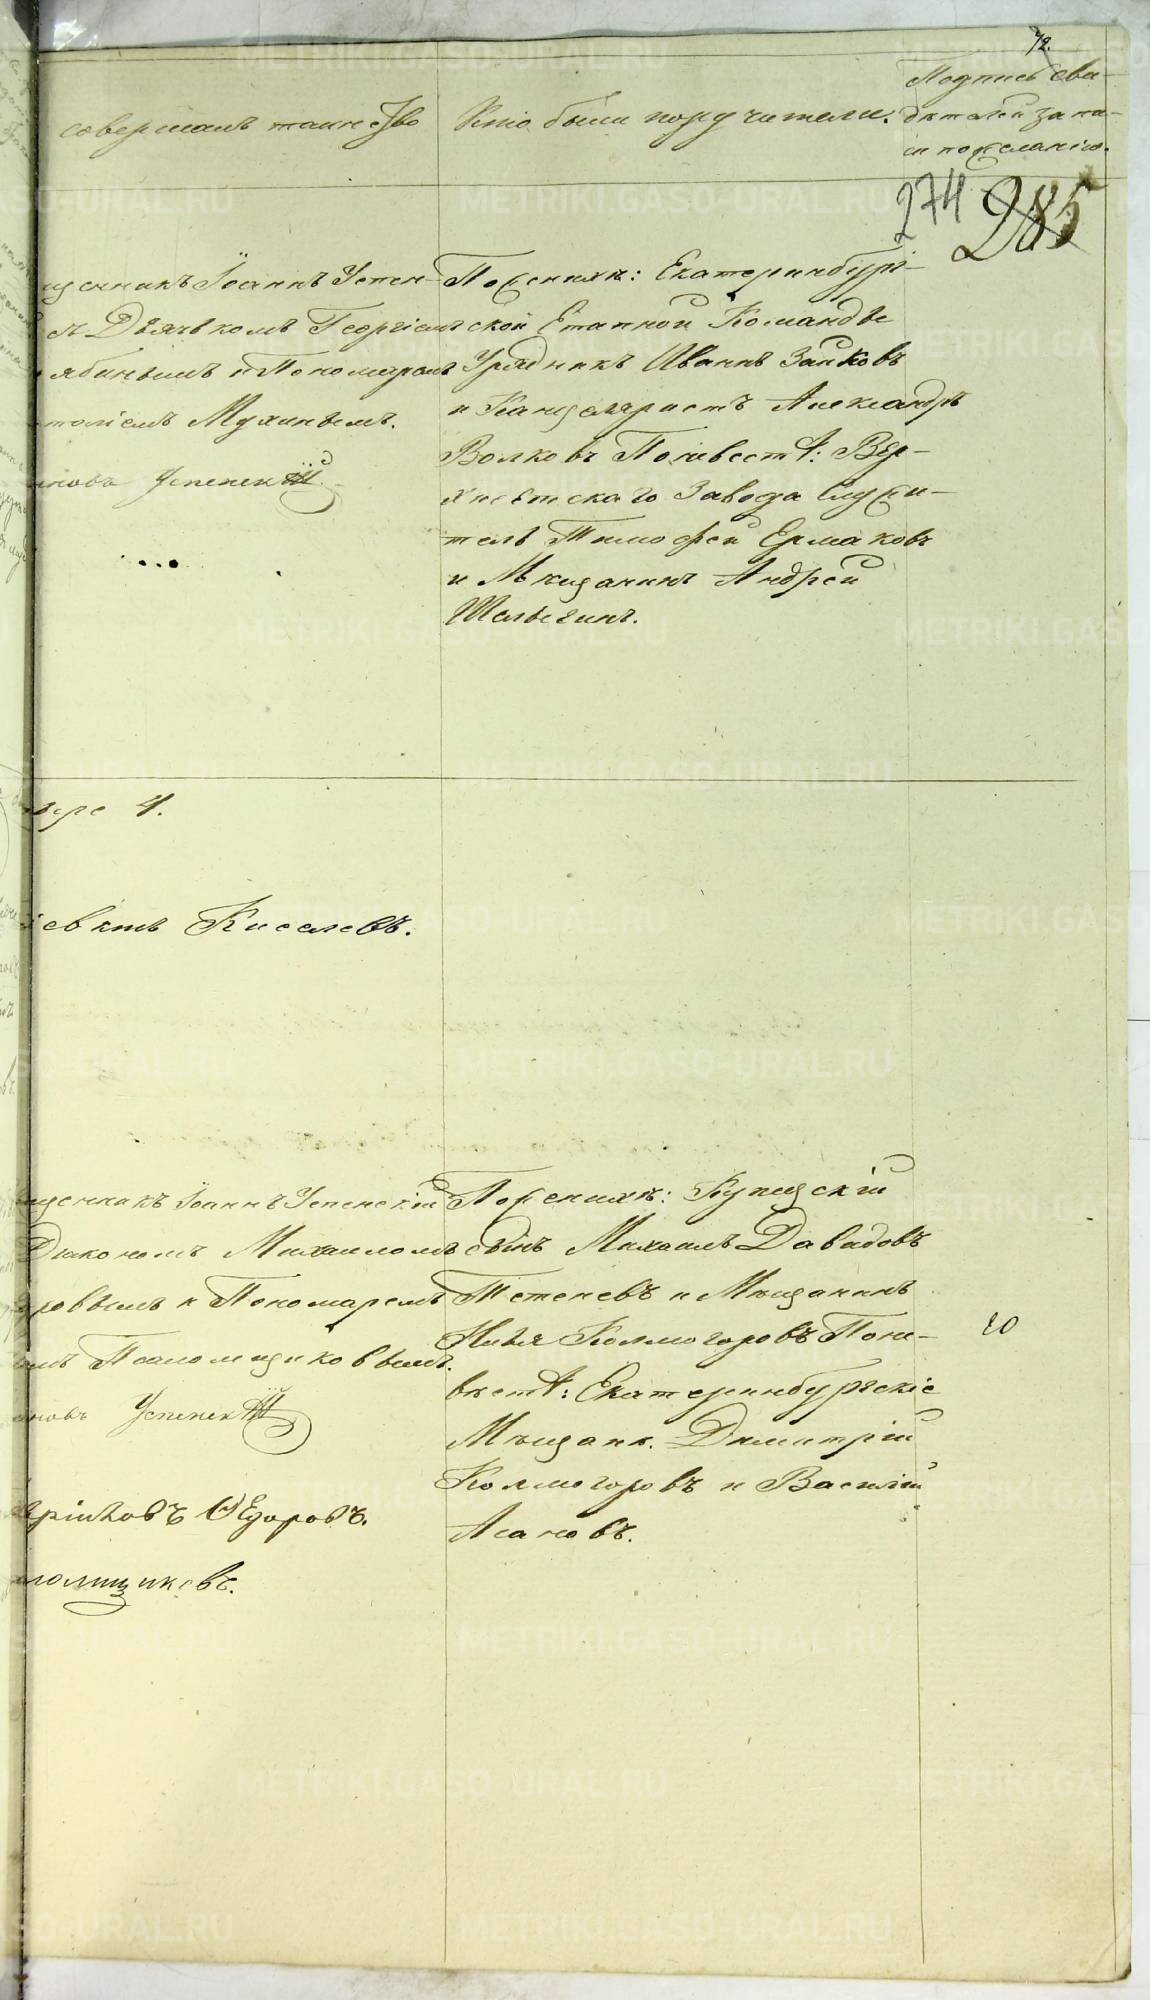 72.
совершалъ таинство
Кто были поручители.
Подпись сви-
дѣтелей запи-
си по желанію.
274 285
щенникъ Іоаннъ Успен-
съ Дьячькомъ Георгіемъ
ябинымъ и Пономаремъ
толіемъ Мухинымъ.
Успенскій
По женихѣ: Екатеринбург-
ской Етапной Командѣ
Урядникъ Иванъ Зайковъ
и Канцеляристъ Александръ
Волковъ По невестѣ: Вер-
хисетскаго Завода Служи-
тель Тимофей Ермаковъ
и Мѣщанинъ Андрей
Шелегинъ.
4.
Киселевъ.
щенникъ Іоаннъ Успенскій
Діакономъ Михаиломъ
ровымъ и Пономаремъ
омъ Псаломщиковымъ.
Успенскій
Ѳедоровъ.
ломщиковъ.
По женихѣ: Купецкій
сынъ Михаилъ Давидовъ
Тетеневъ и Мѣщанинъ
Илья Колмогоровъ По не-
вѣстѣ: Екатеринбургскіе
Мѣщане. Димитрій
Колмогоровъ и Василій
Асановъ.
20
METRIKI.GASO-URAL.RU